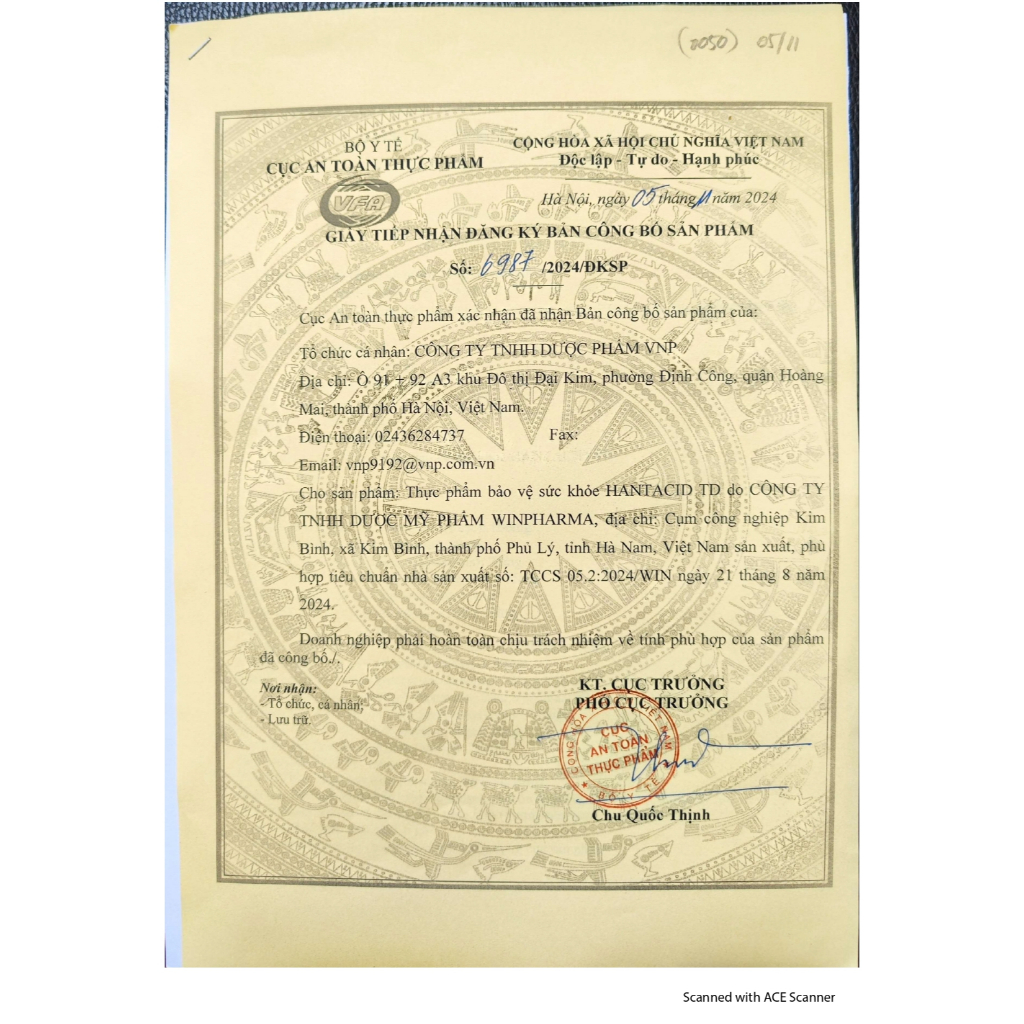 (0050) 05/11
BỘ Y TẾ
CỤC AN TOÀN THỰC PHẨM
VFA
CỘNG HÒA XÃ HỘI CHỦ NGHĨA VIỆT NAM
Độc lập - Tự do - Hạnh phúc
Hà Nội, ngày 05 tháng 11 năm 2024
GIẤY TIẾP NHẬN ĐĂNG KÝ BẢN CÔNG BỐ SẢN PHẨM
Số: 6987 /2024/ĐKSP
Cục An toàn thực phẩm xác nhận đã nhận Bản công bố sản phẩm của:
Tổ chức cá nhân: CÔNG TY TNHH DƯỢC PHẨM VNP
Địa chỉ: Ô 91 + 92 A3 khu Đô thị Đại Kim, phường Định Công, quận Hoàng
Mai, thành phố Hà Nội, Việt Nam.
Điện thoại: 02436284737 Fax:
Email: vnp9192@vnp.com.vn
Cho sản phẩm: Thực phẩm bảo vệ sức khỏe HANTACID TD do CÔNG TY
TNHH DƯỢC MỸ PHẨM WINPHARMA, địa chỉ: Cụm công nghiệp Kim
Bình, xã Kim Bình, thành phố Phủ Lý, tỉnh Hà Nam, Việt Nam sản xuất, phù
hợp tiêu chuẩn nhà sản xuất số: TCCS 05.2:2024/WIN ngày 21 tháng 8 năm
2024.
Doanh nghiệp phải hoàn toàn chịu trách nhiệm về tính phù hợp của sản phẩm
đã công bố./.
Nơi nhận:
- Tổ chức, cá nhân;
- Lưu trữ.
KT. CỤC TRƯỞNG
PHÓ CỤC TRƯỞNG
CỤC
AN TOÀN
THỰC PHẨM
BỘ Y TẾ
Chu Quốc Thịnh
Scanned with ACE Scanner